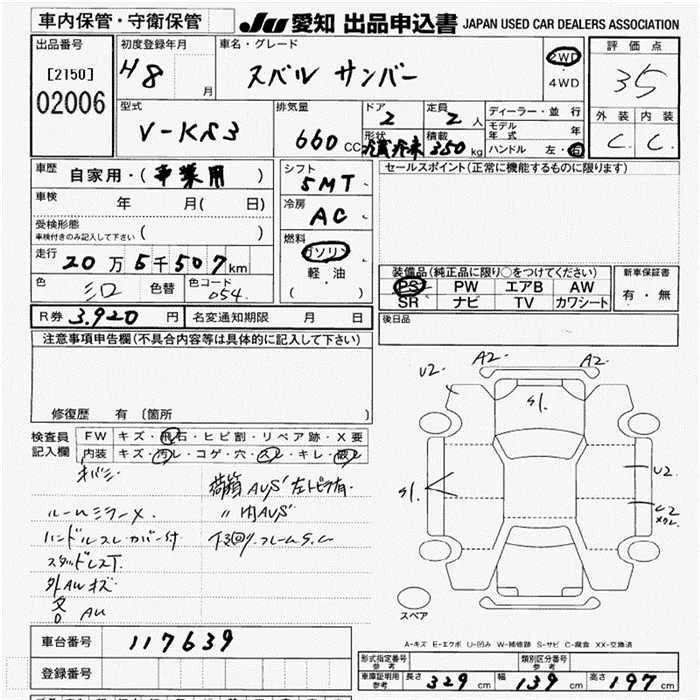 車内保管・守衛保管
JU 愛知 出品申込書 JAPAN USED CAR DEALERS ASSOCIATION
出品番号
[2150]
02006
初度登録年月
H8 月
車名・グレード
スバル サンバー
2WD
4WD
評価点
3.5
外装 内装
C. C.
型式
V-KS3
排気量
660 CC
ドア
2
形状
定員
2 人
積載
350 kg
ディーラー・並行
モデル年式 年
ハンドル 左・右
車歴
自家用・(事業用)
車検
年 月( 日)
受検形態
車検付きのみ記入して下さい ( )
走行
20万5千507km
色
シロ
色替
色コード
054.
シフト
5MT
冷房
AC
燃料
ガソリン
軽・油
( )
セールスポイント(正常に機能するものに限ります)
装備品(純正品に限り○をつけてください)
PS PW エアB AW
SR ナビ TV カワシート
新車保証書
有・無
R券 3.920 円
名変通知期限 月 日
後日品
注意事項申告欄(不具合内容等は具体的に記入して下さい)
修復歴 有 〔箇所
検査員記入欄
FW キズ・飛石・ヒビ割・リペア跡・X要
内装 キズ・汚レ・コゲ・穴・スレ・キレ・破レ
ルームミラーX.
荷箱AUS'
〃内AUS'
ハンドルスレ カバー付
下回り.フレームS.C
スタッドレスT.
外AUキズ
AU
U2.
A2.
A2.
S1.
S1.
U2
スペア
A-キズ E-エクボ U-凹み W-補修跡 S-サビ C-腐食 XX-交換済
車台番号
117639
登録番号
形式指定番号
参考
類別区分番号
参考
車庫証明用
参考
長さ 329 cm 幅 139 cm 高さ 197 cm